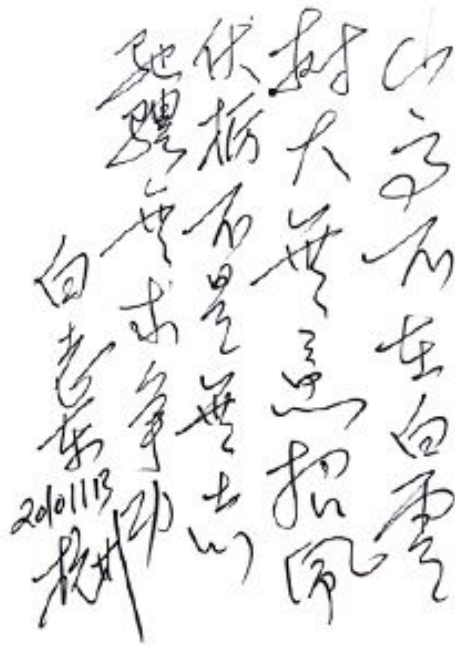 山高不在白雲
樹大無意招風
伏櫪不是無志
馳騁無求爭功
白志東
20101113
杭州